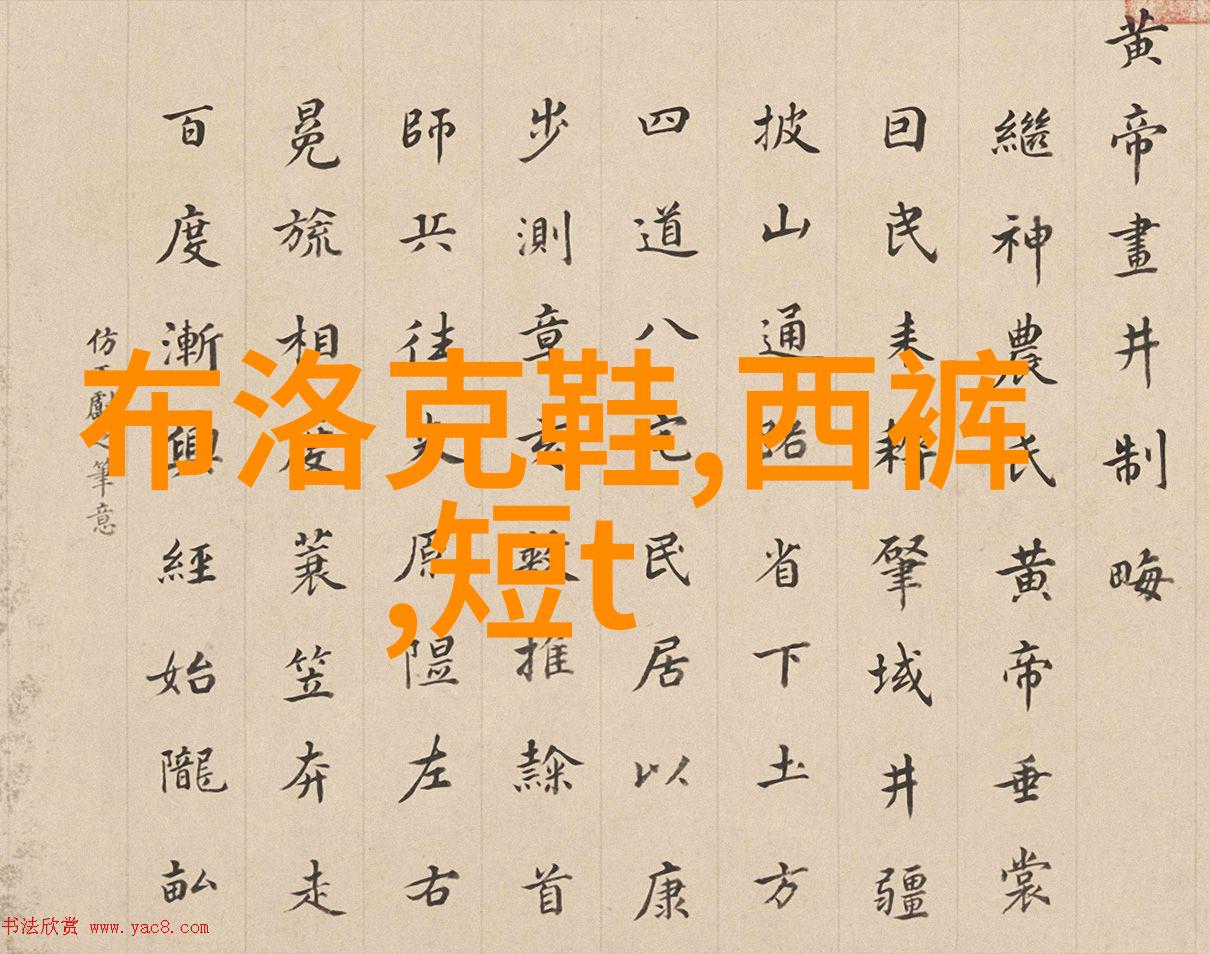 布洛克鞋,西裤
,短t
黄帝畫井制畮
繼神農氏黄帝垂裳
囙民耒耕肇域井疆
披山通路省下土方
四道八宅民居以康
步測章亥數推隸首
師兵往來原隰左右
冕旒相度蓑笠奔走
百度漸興經始隴畝
仿王獻之筆意
书法欣赏 www.yac8.com